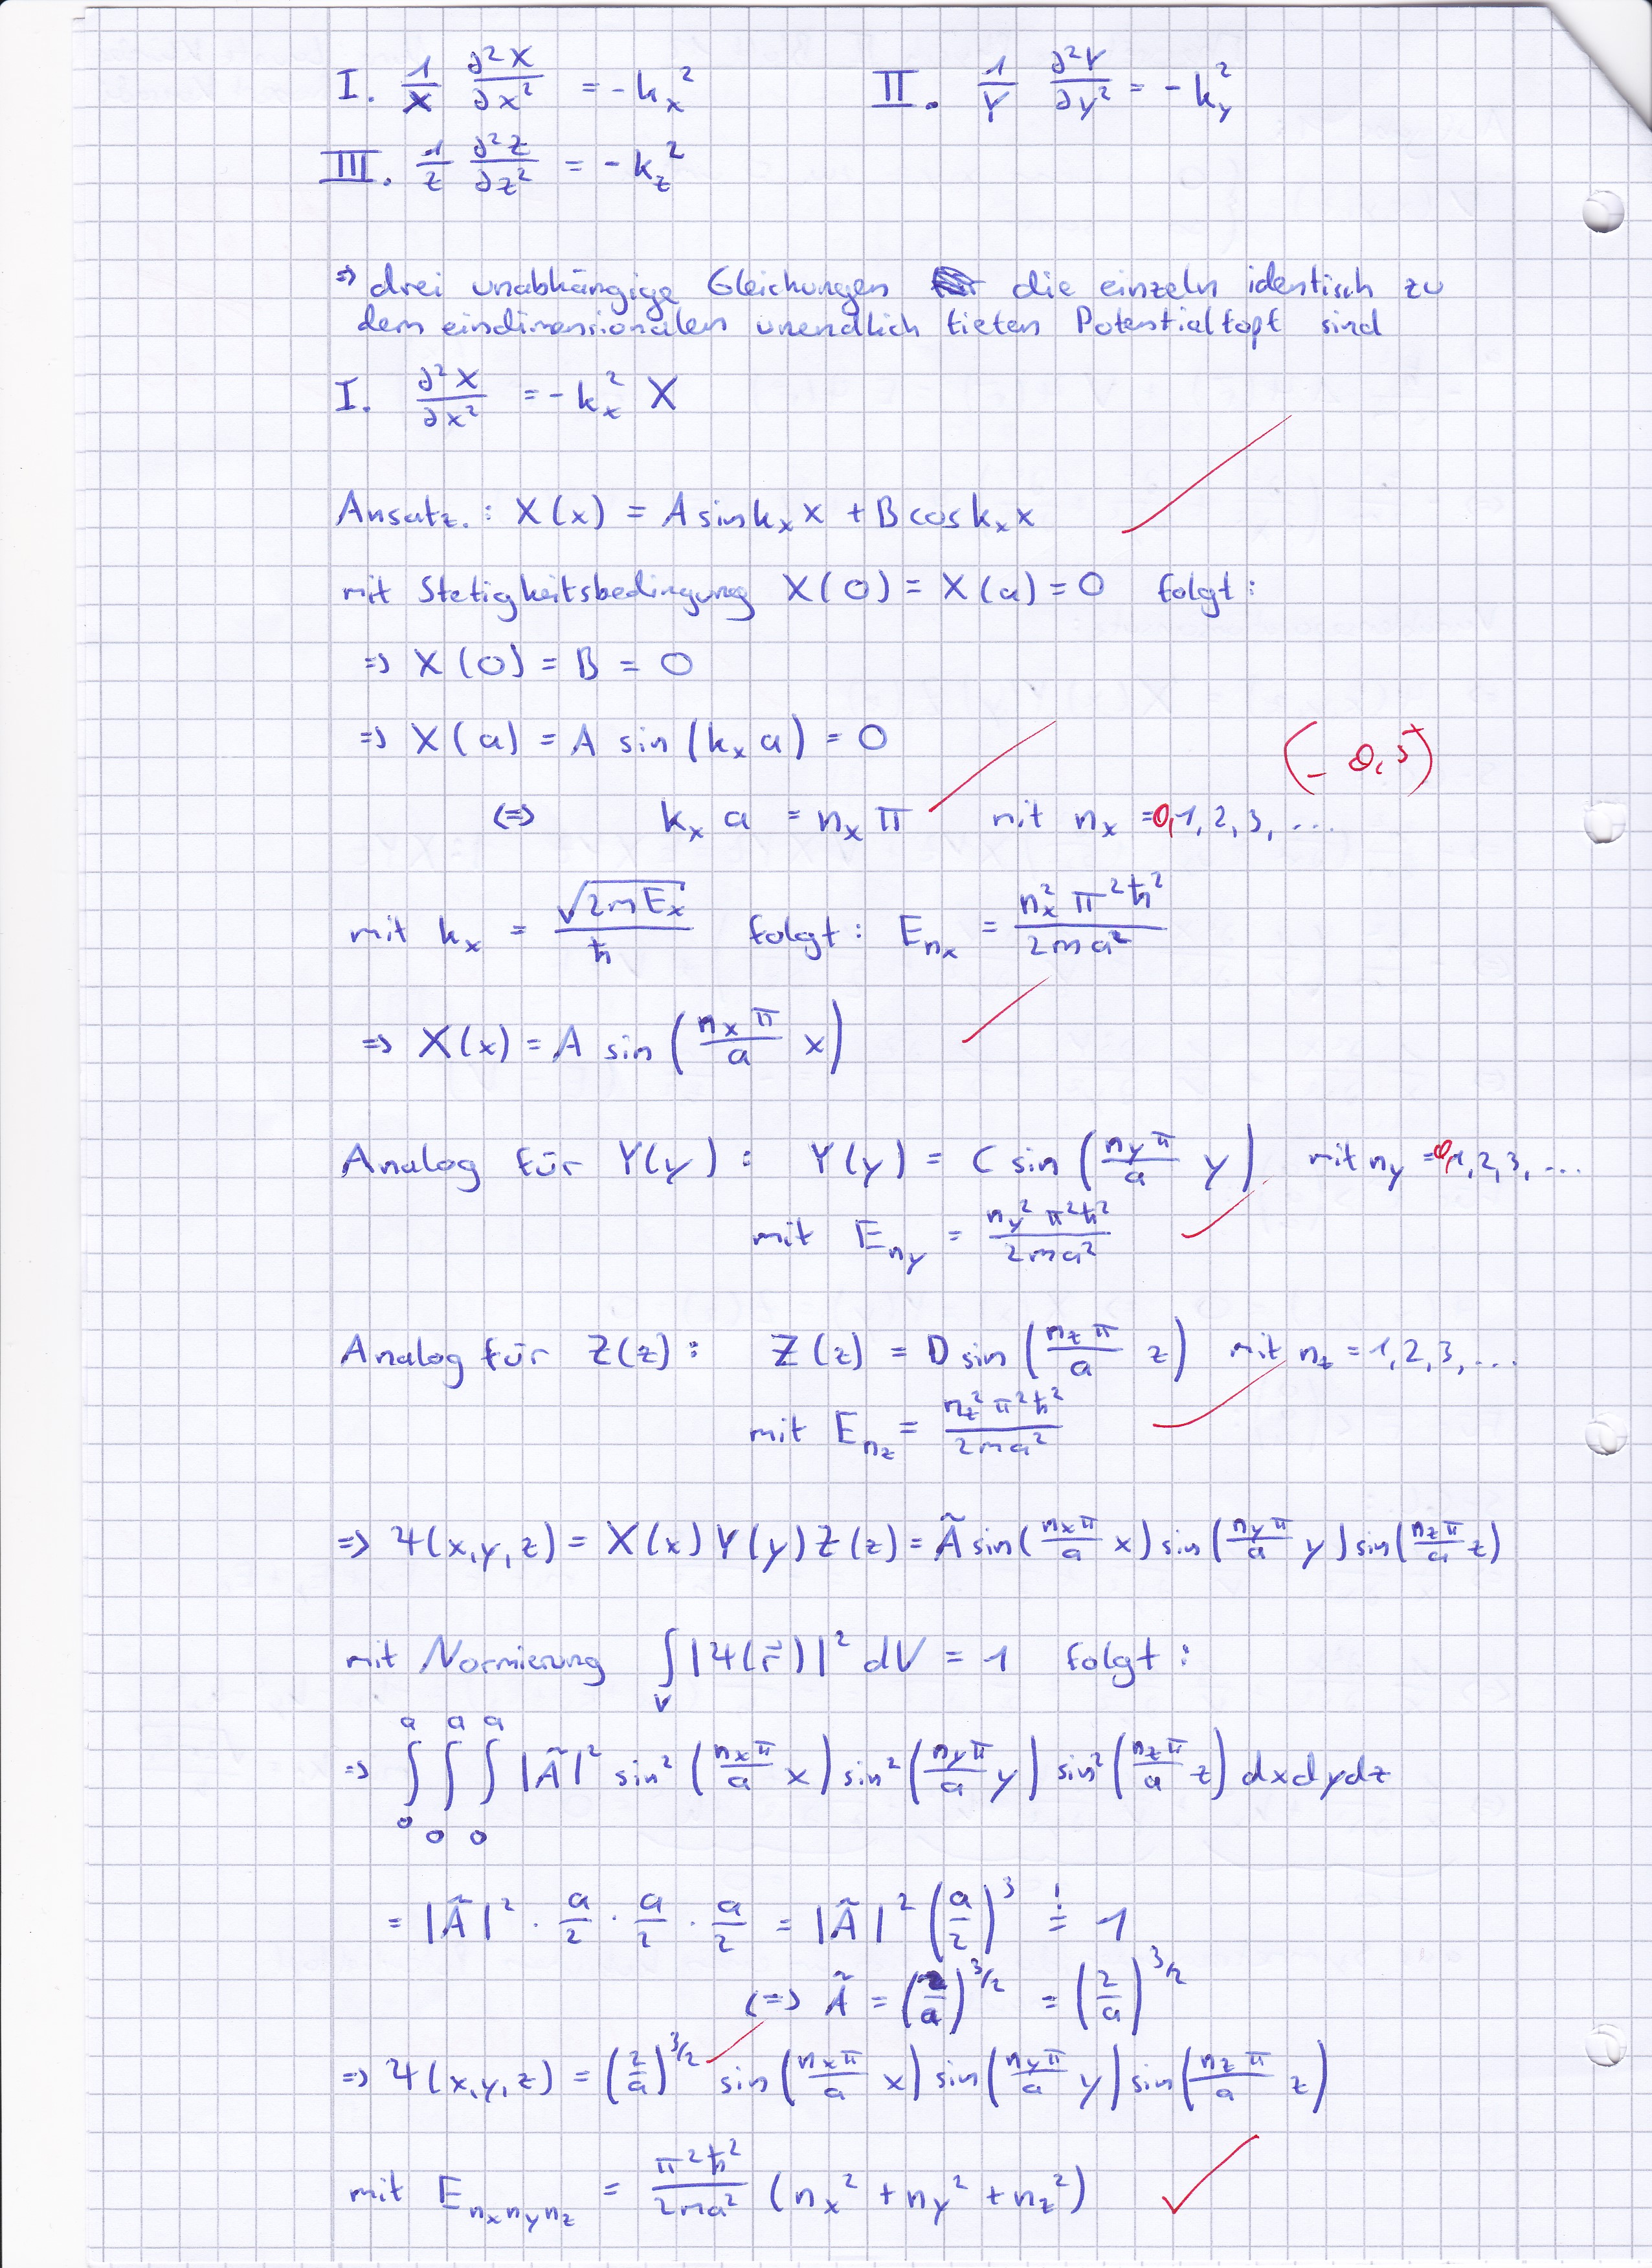 I. 1/X ∂²X/∂x² = -kₓ² II. 1/Y ∂²Y/∂y² = -k_y²
III. 1/Z ∂²Z/∂z² = -k_z²
⇒ drei unabhängige Gleichungen die einzeln identisch zu
dem eindimensionalen unendlich tiefen Potentialtopf sind
I. ∂²X/∂x² = -kₓ² X
Ansatz.: X(x) = A sin kₓ x + B cos kₓ x
mit Stetigkeitsbedingung X(0) = X(a) = 0 folgt:
⇒ X(0) = B = 0
⇒ X(a) = A sin(kₓ a) = 0
(-0,5)
⇔ kₓ a = nₓ π mit nₓ = 0,1,2,3,...
mit kₓ = √(2mEₓ)/ħ folgt: E_nₓ = nₓ² π² ħ² / 2ma²
⇒ X(x) = A sin(nₓπ/a x)
Analog für Y(y): Y(y) = C sin(n_yπ/a y) mit n_y = 0,1,2,3,...
mit E_n_y = n_y² π² ħ² / 2ma²
Analog für Z(z): Z(z) = D sin(n_zπ/a z) mit n_z = 1,2,3,...
mit E_n_z = n_z² π² ħ² / 2ma²
⇒ Ψ(x,y,z) = X(x) Y(y) Z(z) = Ã sin(nₓπ/a x) sin(n_yπ/a y) sin(n_zπ/a z)
mit Normierung ∫_V |Ψ(r⃗)|² dV = 1 folgt:
⇒ ∫₀ᵃ ∫₀ᵃ ∫₀ᵃ |Ã|² sin²(nₓπ/a x) sin²(n_yπ/a y) sin²(n_zπ/a z) dxdydz
= |Ã|² · a/2 · a/2 · a/2 = |Ã|² (a/2)³ =! 1
⇔ Ã = (2/a)^3/2 = (2/a)^3/2
⇒ Ψ(x,y,z) = (2/a)^3/2 sin(nₓπ/a x) sin(n_yπ/a y) sin(n_zπ/a z)
mit E_nₓn_yn_z = π²ħ²/2ma² (nₓ² + n_y² + n_z²)